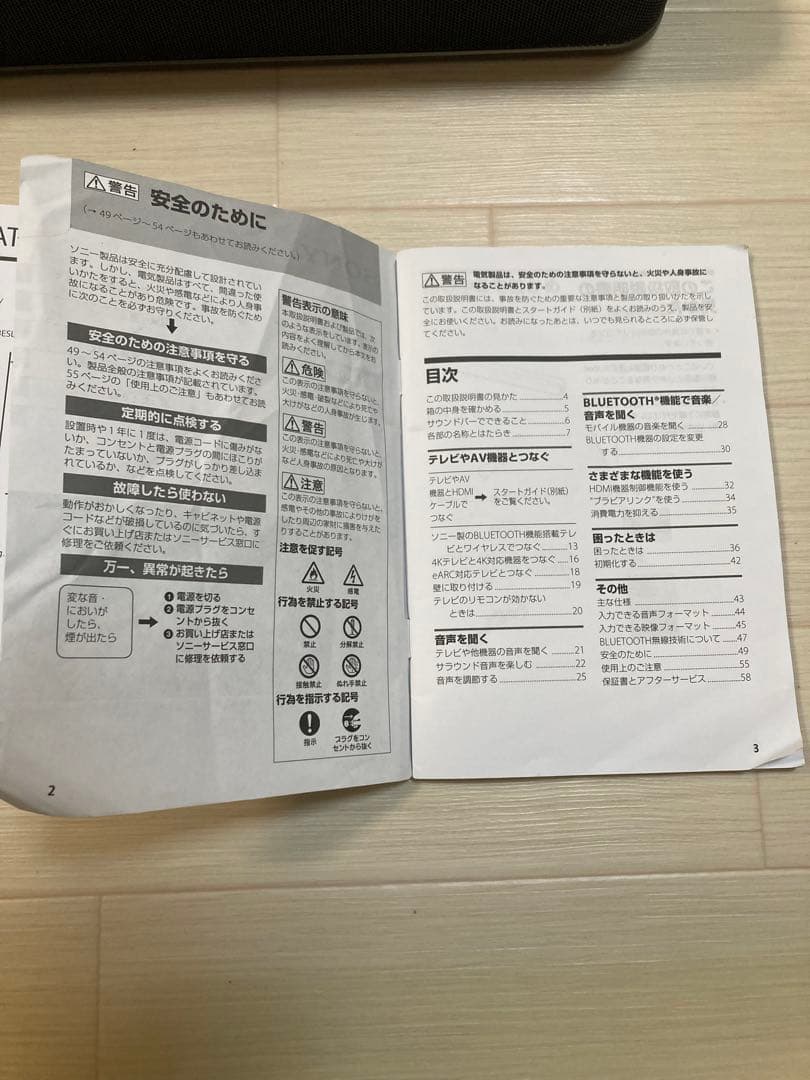 警告 安全のために
(→ 49ページ～54ページもあわせてお読みください。)
ソニー製品は安全に充分配慮して設計されてい
ます。しかし、電気製品はすべて、間違った使
いかたをすると、火災や感電などにより人身事
故になることがあり危険です。事故を防ぐため
に次のことを必ずお守りください。
安全のための注意事項を守る
49～54ページの注意事項をよくお読みくださ
い。製品全般の注意事項が記載されています。
55ページの「使用上のご注意」もあわせてお読
みください。
定期的に点検する
設置時や1年に1度は、電源コードに傷みがな
いか、コンセントと電源プラグの間にほこりが
たまっていないか、プラグがしっかり差し込ま
れているか、などを点検してください。
故障したら使わない
動作がおかしくなったり、キャビネットや電源
コードなどが破損しているのに気づいたら、す
ぐにお買い上げ店またはソニーサービス窓口に
修理をご依頼ください。
万一、異常が起きたら
変な音・
においが
したら、
煙が出たら
→
❶ 電源を切る
❷ 電源プラグをコンセ
ントから抜く
❸ お買い上げ店または
ソニーサービス窓口
に修理を依頼する
警告表示の意味
本取扱説明書および製品では、次
のような表示をしています。表示の
内容をよく理解してから本文をお
読みください。
危険
この表示の注意事項を守らないと、
火災・感電・破裂などにより死亡や
大けがなどの人身事故が生じます。
警告
この表示の注意事項を守らないと、
火災・感電などにより死亡や大けが
など人身事故の原因となります。
注意
この表示の注意事項を守らないと、
感電やその他の事故によりけがを
したり周辺の家財に損害を与えた
りすることがあります。
注意を促す記号
火災 感電
行為を禁止する記号
禁止 分解禁止
接触禁止 ぬれ手禁止
行為を指示する記号
指示 プラグをコン
セントから抜く
2
警告 電気製品は、安全のための注意事項を守らないと、火災や人身事故に
なることがあります。
この取扱説明書には、事故を防ぐための重要な注意事項と製品の取り扱いかたを示し
ています。この取扱説明書とスタートガイド(別紙)をよくお読みのうえ、製品を安
全にお使いください。お読みになったあとは、いつでも見られるところに必ず保管し
てください。
目次
この取扱説明書の見かた 4
箱の中身を確かめる 5
サウンドバーでできること 6
各部の名称とはたらき 7
テレビやAV機器とつなぐ
テレビやAV
機器とHDMI
ケーブルで
つなぐ
→ スタートガイド(別紙)
をご覧ください。
ソニー製のBLUETOOTH機能搭載テレ
ビとワイヤレスでつなぐ 13
4Kテレビと4K対応機器をつなぐ 16
eARC対応テレビとつなぐ 18
壁に取り付ける 19
テレビのリモコンが効かない
ときは 20
音声を聞く
テレビや他機器の音声を聞く 21
サラウンド音声を楽しむ 22
音声を調節する 25
BLUETOOTH®機能で音楽／
音声を聞く
モバイル機器の音楽を聞く 28
BLUETOOTH機器の設定を変更
する 30
さまざまな機能を使う
HDMI機器制御機能を使う 32
“ブラビアリンク”を使う 34
消費電力を抑える 35
困ったときは
困ったときは 36
初期化する 42
その他
主な仕様 43
入力できる音声フォーマット 44
入力できる映像フォーマット 45
BLUETOOTH無線技術について 47
安全のために 49
使用上のご注意 55
保証書とアフターサービス 58
3